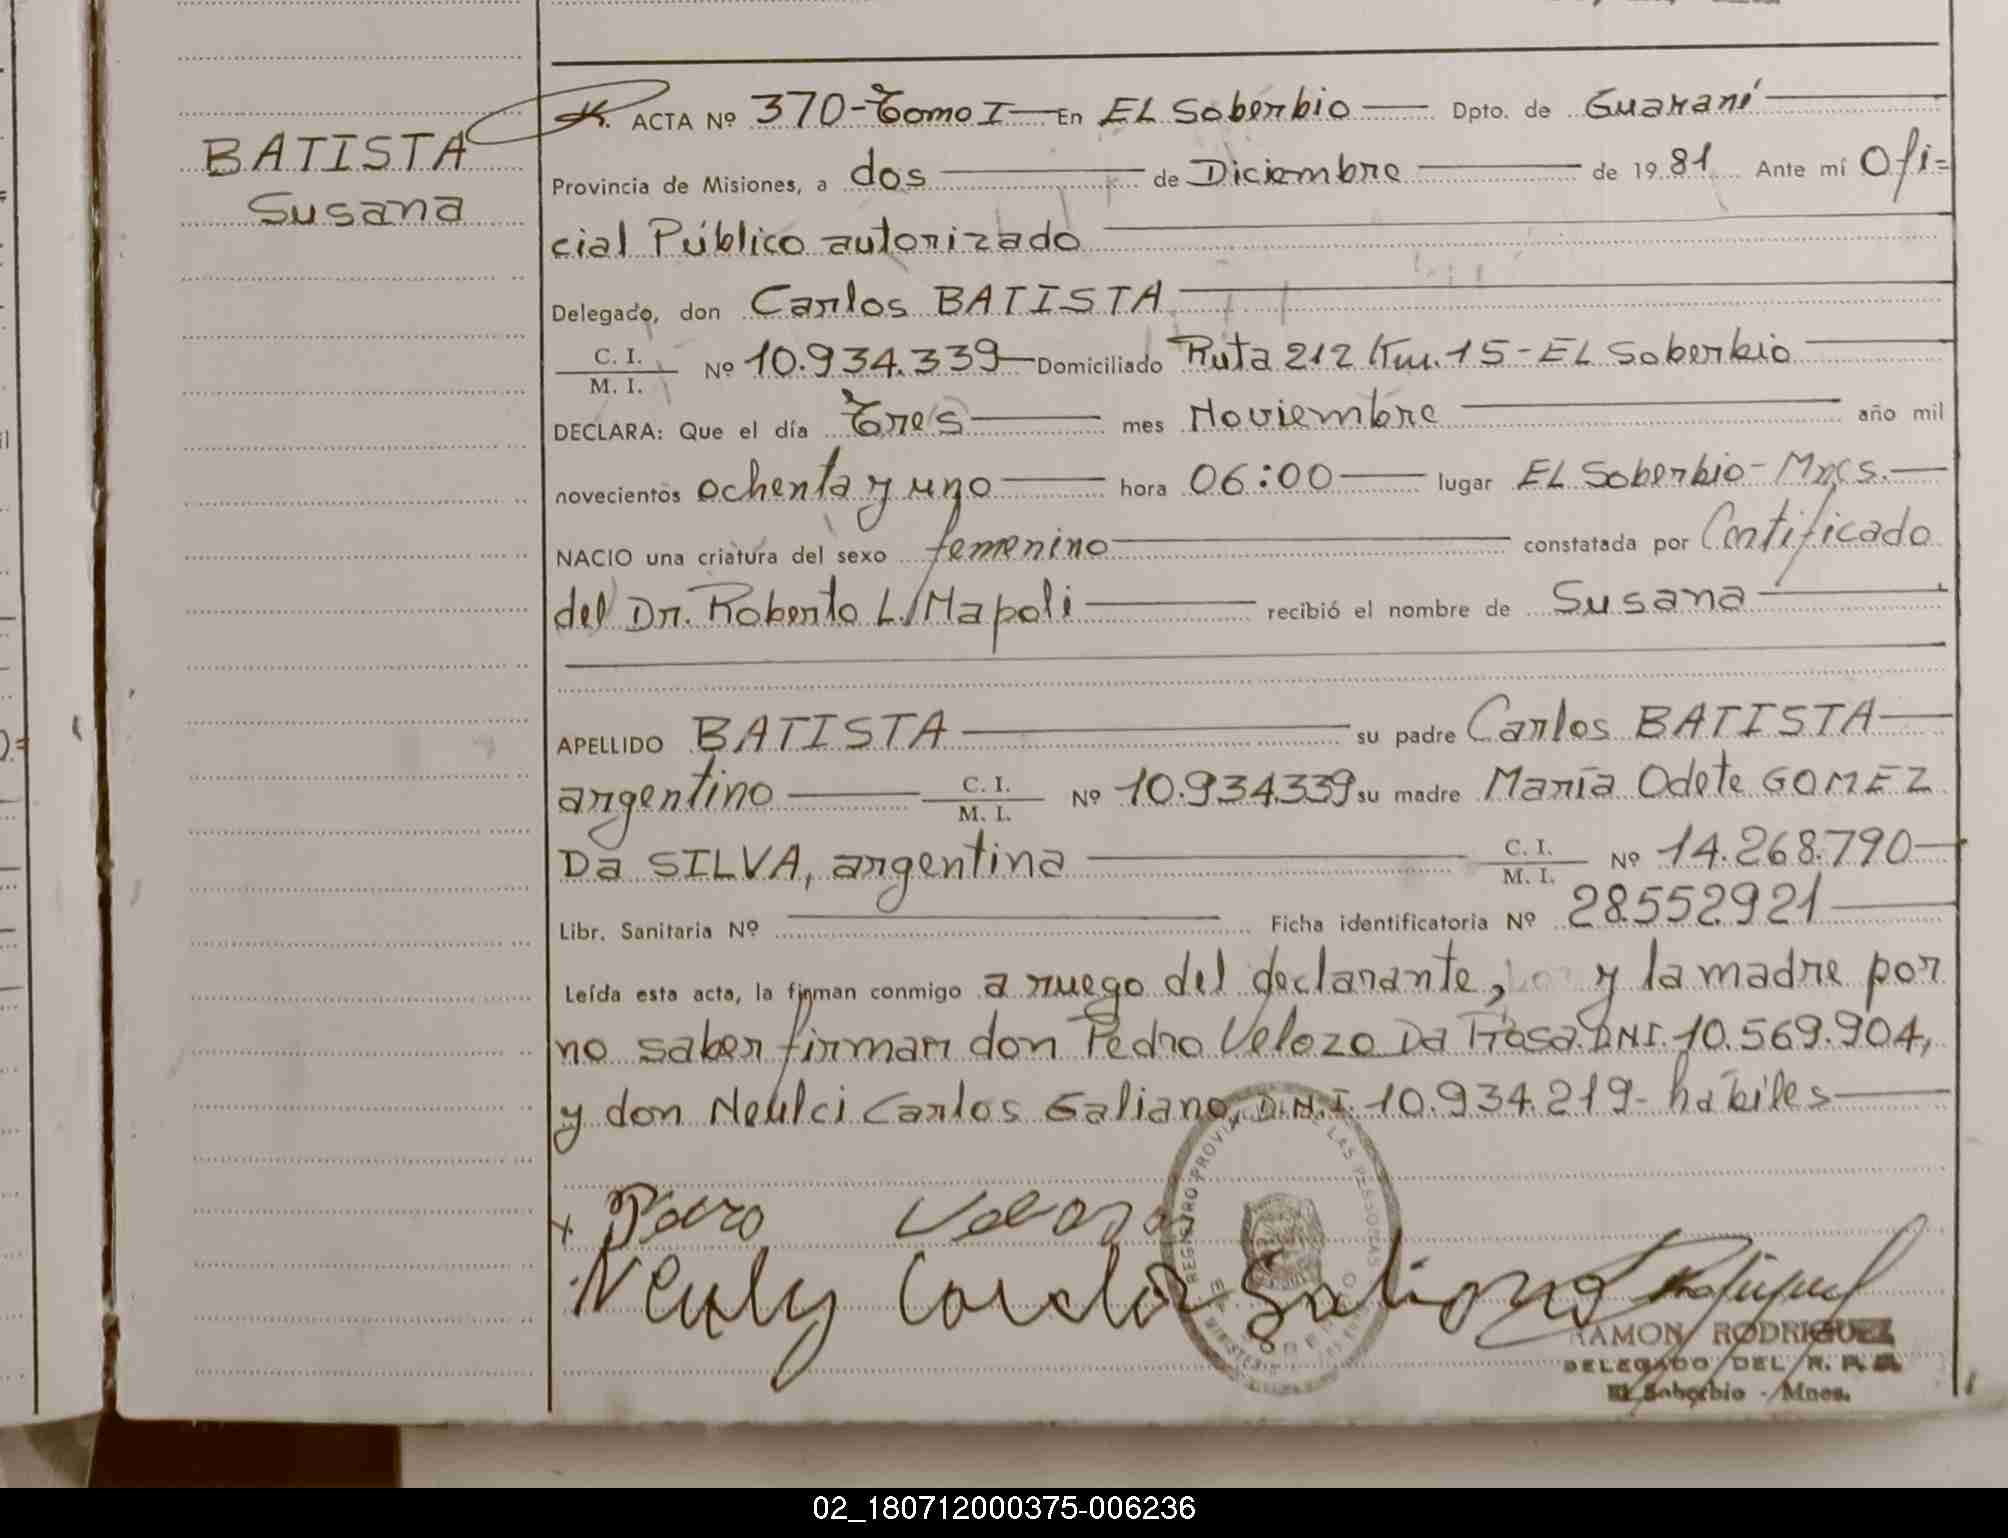 BATISTA
Susana
ACTA Nº 370-Tomo I En EL Soberbio Dpto. de Guaraní
Provincia de Misiones, a dos de Diciembre de 1981 Ante mí Ofi=
cial Público autorizado
Delegado, don Carlos BATISTA
C. I.
M. I. Nº 10.934.339 Domiciliado Ruta 212 Km. 15-EL Soberbio
DECLARA: Que el día Tres mes Noviembre año mil
novecientos ochenta y uno hora 06:00 lugar EL Soberbio-Mnes.
NACIO una criatura del sexo femenino constatada por Certificado
del Dr. Roberto L. Napoli recibió el nombre de Susana
APELLIDO BATISTA su padre Carlos BATISTA
argentino C. I.
M. I. Nº 10.934.339 su madre María Odete GOMEZ
Da SILVA, argentina C. I.
M. I. Nº 14.268.790
Libr. Sanitaria Nº Ficha identificatoria Nº 28.552.921
Leída esta acta, la firman conmigo a ruego del declarante, y la madre por
no saber firmar don Pedro Velozo Da Rosa DNI. 10.569.904,
y don Neulci Carlos Galiano, D.N.I. 10.934.219- hábiles
REGISTRO PROVINCIAL DE LAS PERSONAS
Pedro Velozo
Neuly Carlos Galiano
RAMON RODRIGUEZ
DELEGADO DEL R. P. P.
El Soberbio - Mnes.
02_180712000375-006236